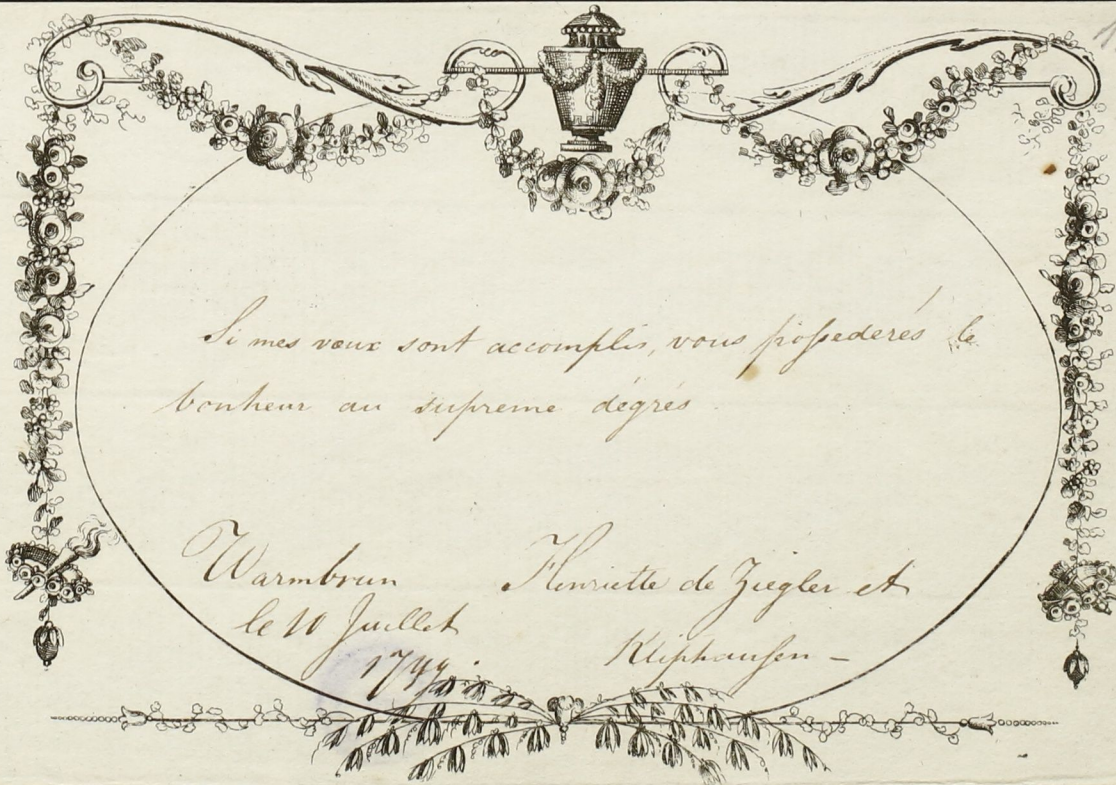 Si mes vœux sont accomplis, vous possederés le
bonheur au supreme dégrés
Warmbrun
le 10 Juillet
1799.
Henriette de Ziegler et
Kliphausen –